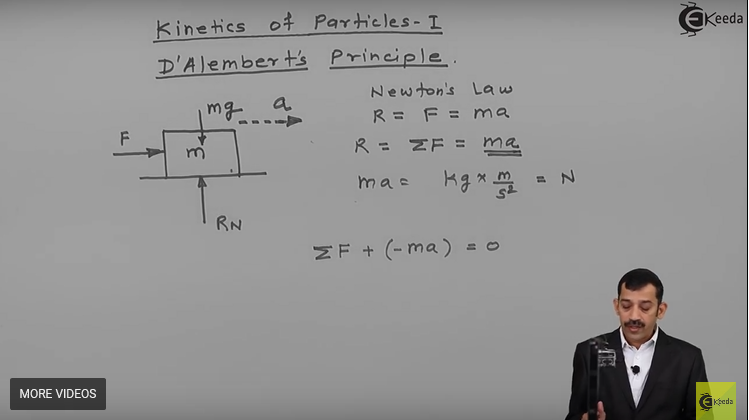 Kinetics of Particles-I
D'Alembert's Principle.
Ekeeda
Newton's Law
R = F = ma
R = ΣF = ma
ma = kg × m/s² = N
mg
a
F
m
RN
ΣF + (-ma) = 0
MORE VIDEOS
Ekeeda